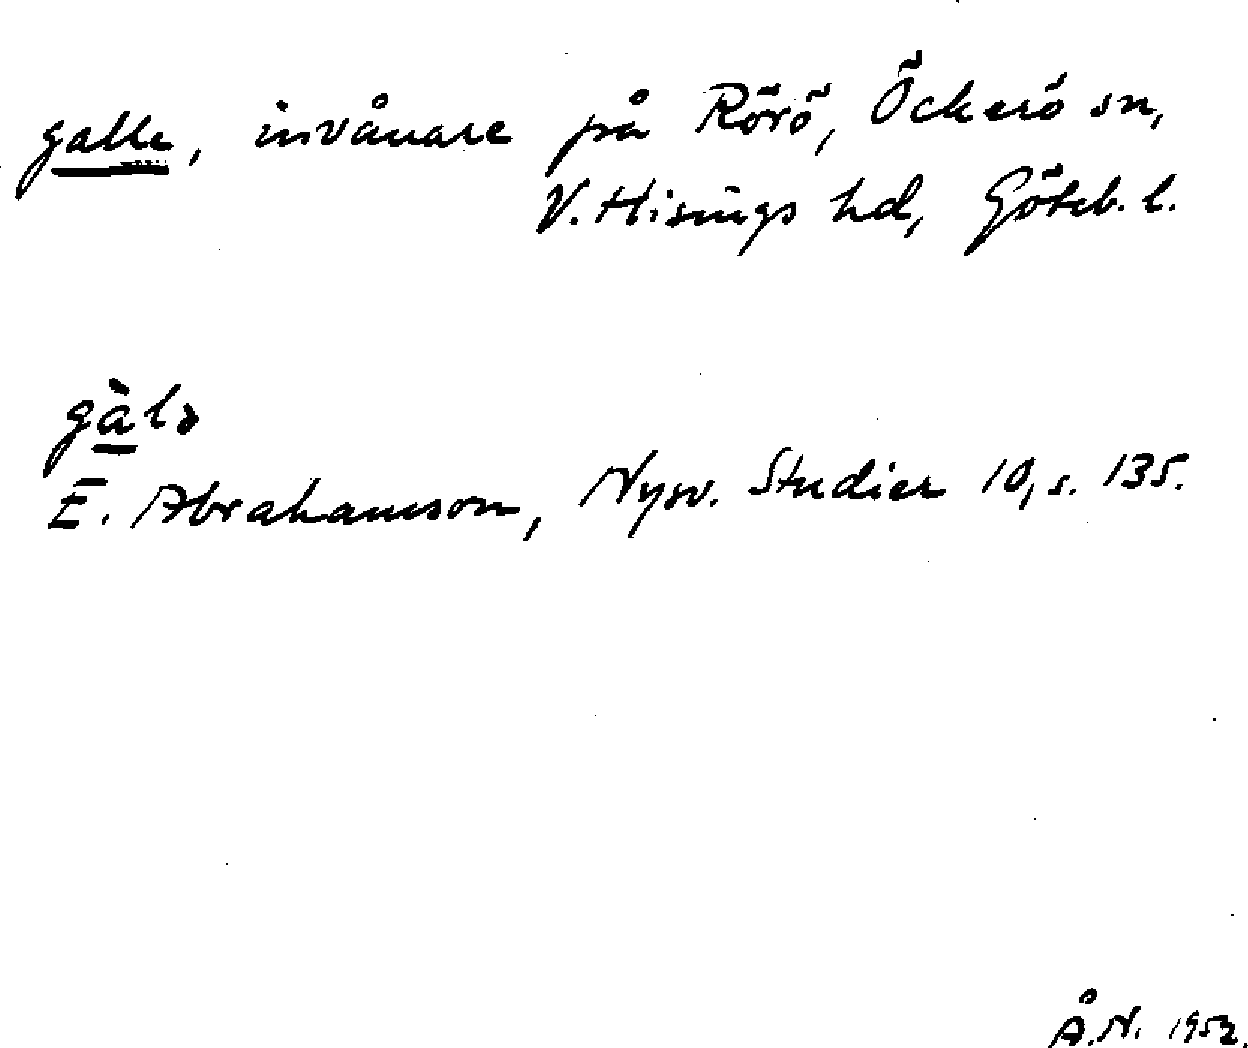 galle, invånare på Rörö, Öckerö sn,
V. Hisings hd, Göteb. l.
gàlə
E. Abrahamson, Nysv. Studier 10, s. 135.
Å.N. 1952.